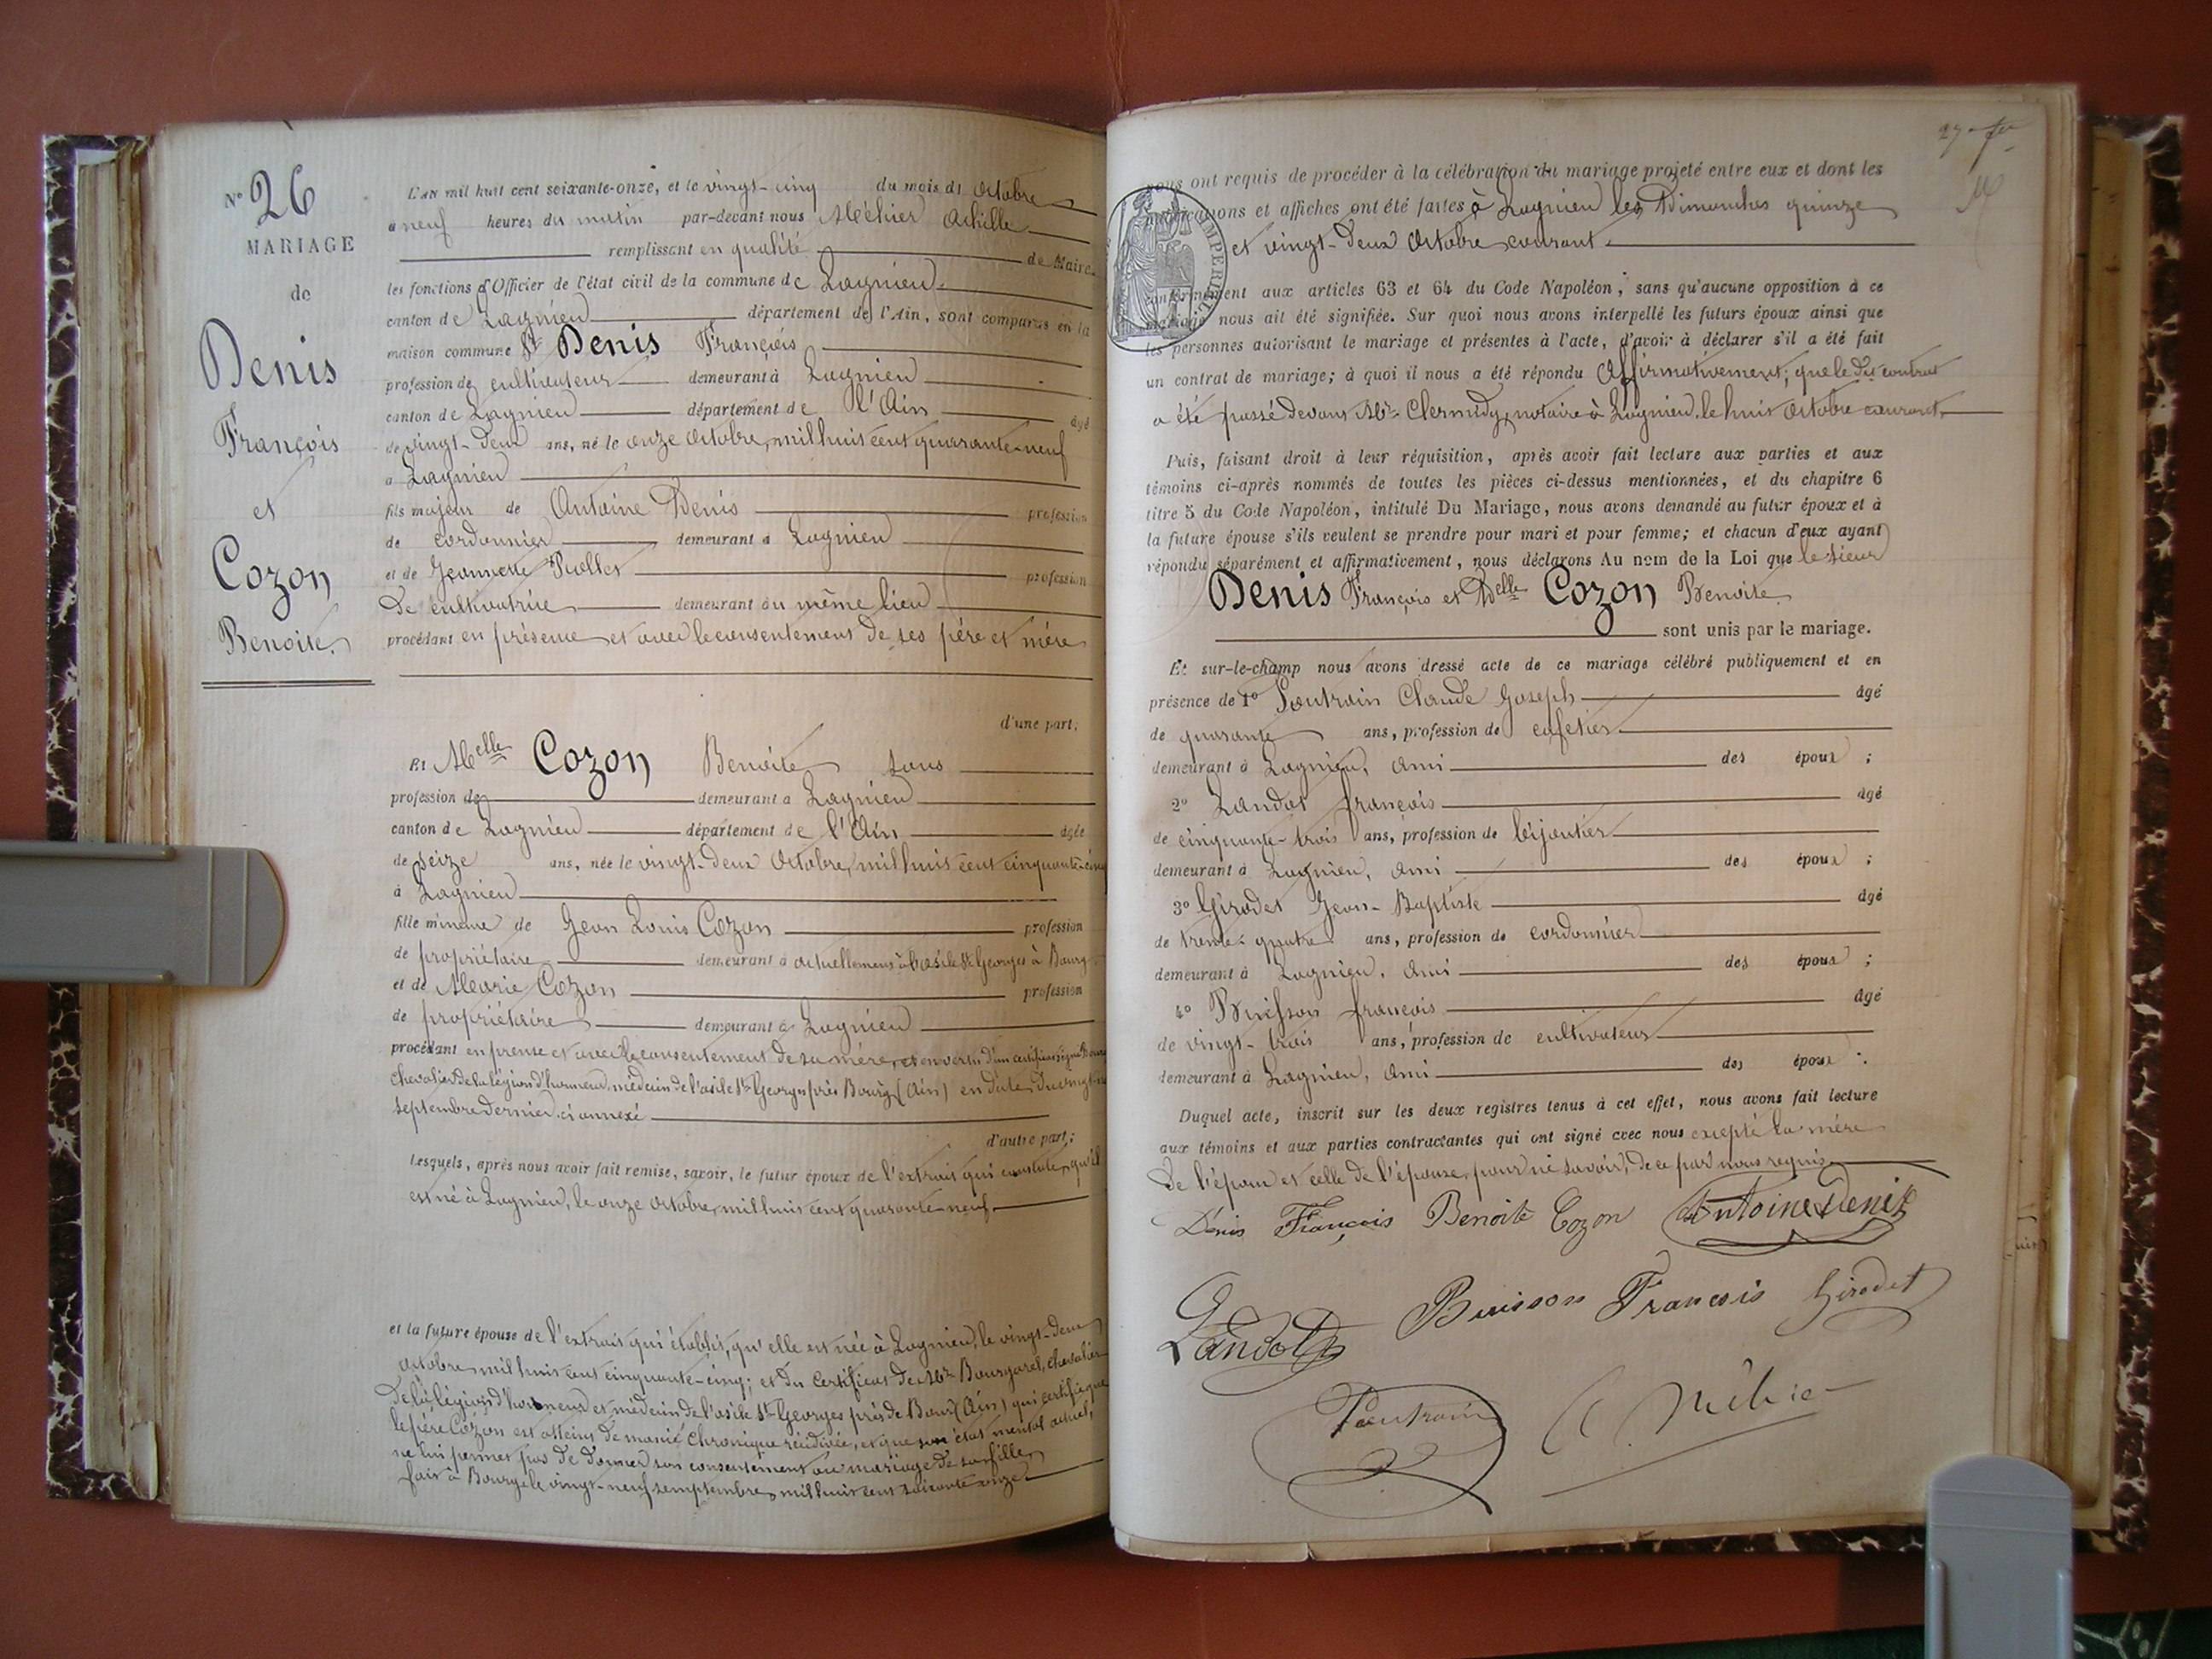 N° 26
MARIAGE
de
Denis
François
et
Cozon
Benoite.
L'an mil huit cent soixante-onze, et le vingt-cinq du mois de Octobre
à neuf heures du matin par-devant nous Méhier Achille
remplissant en qualité de Maire
les fonctions d'Officier de l'état civil de la commune de Lagnieu
canton de Lagnieu département de l'Ain, sont comparus en la
maison commune Sr Denis François
profession de cultivateur demeurant à Lagnieu
canton de Lagnieu département de l'Ain âgé
de vingt-deux ans, né le onze Octobre, mil huit cent quarante-neuf
à Lagnieu
fils majeur de Antoine Denis profession
de cordonnier demeurant à Lagnieu
et de Jeannette profession
de cultivatrice demeurant au même lieu
procédant en présence et avec le consentement de ses père et mère
d'une part.
Et Melle Cozon Benoite sans
profession de demeurant à Lagnieu
canton de Lagnieu département de l'Ain âgée
de seize ans, née le vingt-deux Octobre, mil huit cent cinquante-cinq
à Lagnieu
fille mineure de Jean Louis Cozon profession
de propriétaire demeurant à actuellement à l'asile St Georges à Bourg
et de Marie Cozon profession
de propriétaire demeurant à Lagnieu
procédant en présence et avec le consentement de sa mère, et en vertu d'un certificat signé
chevalier de la légion d'honneur, médecin de l'asile St Georges près Bourg (Ain) en date du vingt-
septembre dernier, ci annexé
d'autre part;
Lesquels, après nous avoir fait remise, savoir, le futur époux de l'extrait qui constate, qu'il
est né à Lagnieu, le onze Octobre, mil huit cent quarante-neuf
et la future épouse de l'extrait qui établit, qu'elle est née à Lagnieu, le vingt-deux
Octobre mil huit cent cinquante-cinq; et du Certificat de Mr Bourgarel, chevalier
de la légion d'honneur et médecin de l'asile St Georges près de Bourg (Ain) qui certifie que
le père Cozon est atteint de manie Chronique récidivée, et que son état mental actuel,
ne lui permet pas de donner son consentement au mariage de sa fille,
fait à Bourg le vingt-neuf semptembre, mil huit cent soixante onze
27
nous ont requis de procéder à la célébration du mariage projeté entre eux et dont les
publications et affiches ont été faites à Lagnieu les Dimanches quinze
et vingt-deux Octobre courant
conformément aux articles 63 et 64 du Code Napoléon, sans qu'aucune opposition à ce
mariage nous ait été signifiée. Sur quoi nous avons interpellé les futurs époux ainsi que
les personnes autorisant le mariage et présentes à l'acte, d'avoir à déclarer s'il a été fait
un contrat de mariage; à quoi il nous a été répondu Affirmativement; que le dit contrat
a été passé devant Mr notaire à Lagnieu, le huit Octobre courant
Puis, faisant droit à leur réquisition, après avoir fait lecture aux parties et aux
témoins ci-après nommés de toutes les pièces ci-dessus mentionnées, et du chapitre 6
titre 5 du Code Napoléon, intitulé Du Mariage, nous avons demandé au futur époux et à
la future épouse s'ils veulent se prendre pour mari et pour femme; et chacun d'eux ayant
répondu séparément et affirmativement, nous déclarons Au nom de la Loi que le sieur
Denis François et Delle Cozon Benoite
sont unis par le mariage.
Et sur-le-champ nous avons dressé acte de ce mariage célébré publiquement et en
présence de 1° Claude Joseph âgé
de quarante ans, profession de cafetier
demeurant à Lagnieu, ami des époux ;
2° Landot françois âgé
de cinquante-trois ans, profession de bijoutier
demeurant à Lagnieu, ami des époux ;
3° Girodet Jean-Baptiste âgé
de trente-quatre ans, profession de cordonnier
demeurant à Lagnieu, ami des époux ;
4° Buisson françois âgé
de vingt-trois ans, profession de cultivateur
demeurant à Lagnieu, ami des époux .
Duquel acte, inscrit sur les deux registres tenus à cet effet, nous avons fait lecture
aux témoins et aux parties contractantes qui ont signé avec nous excepté la mère
de l'époux et celle de l'épouse, pour ne savoir, de ce part nous requis
Dénis François Benoite Cozon Antoine Denis
Landot Buisson Francois Girodet
A. Méhier